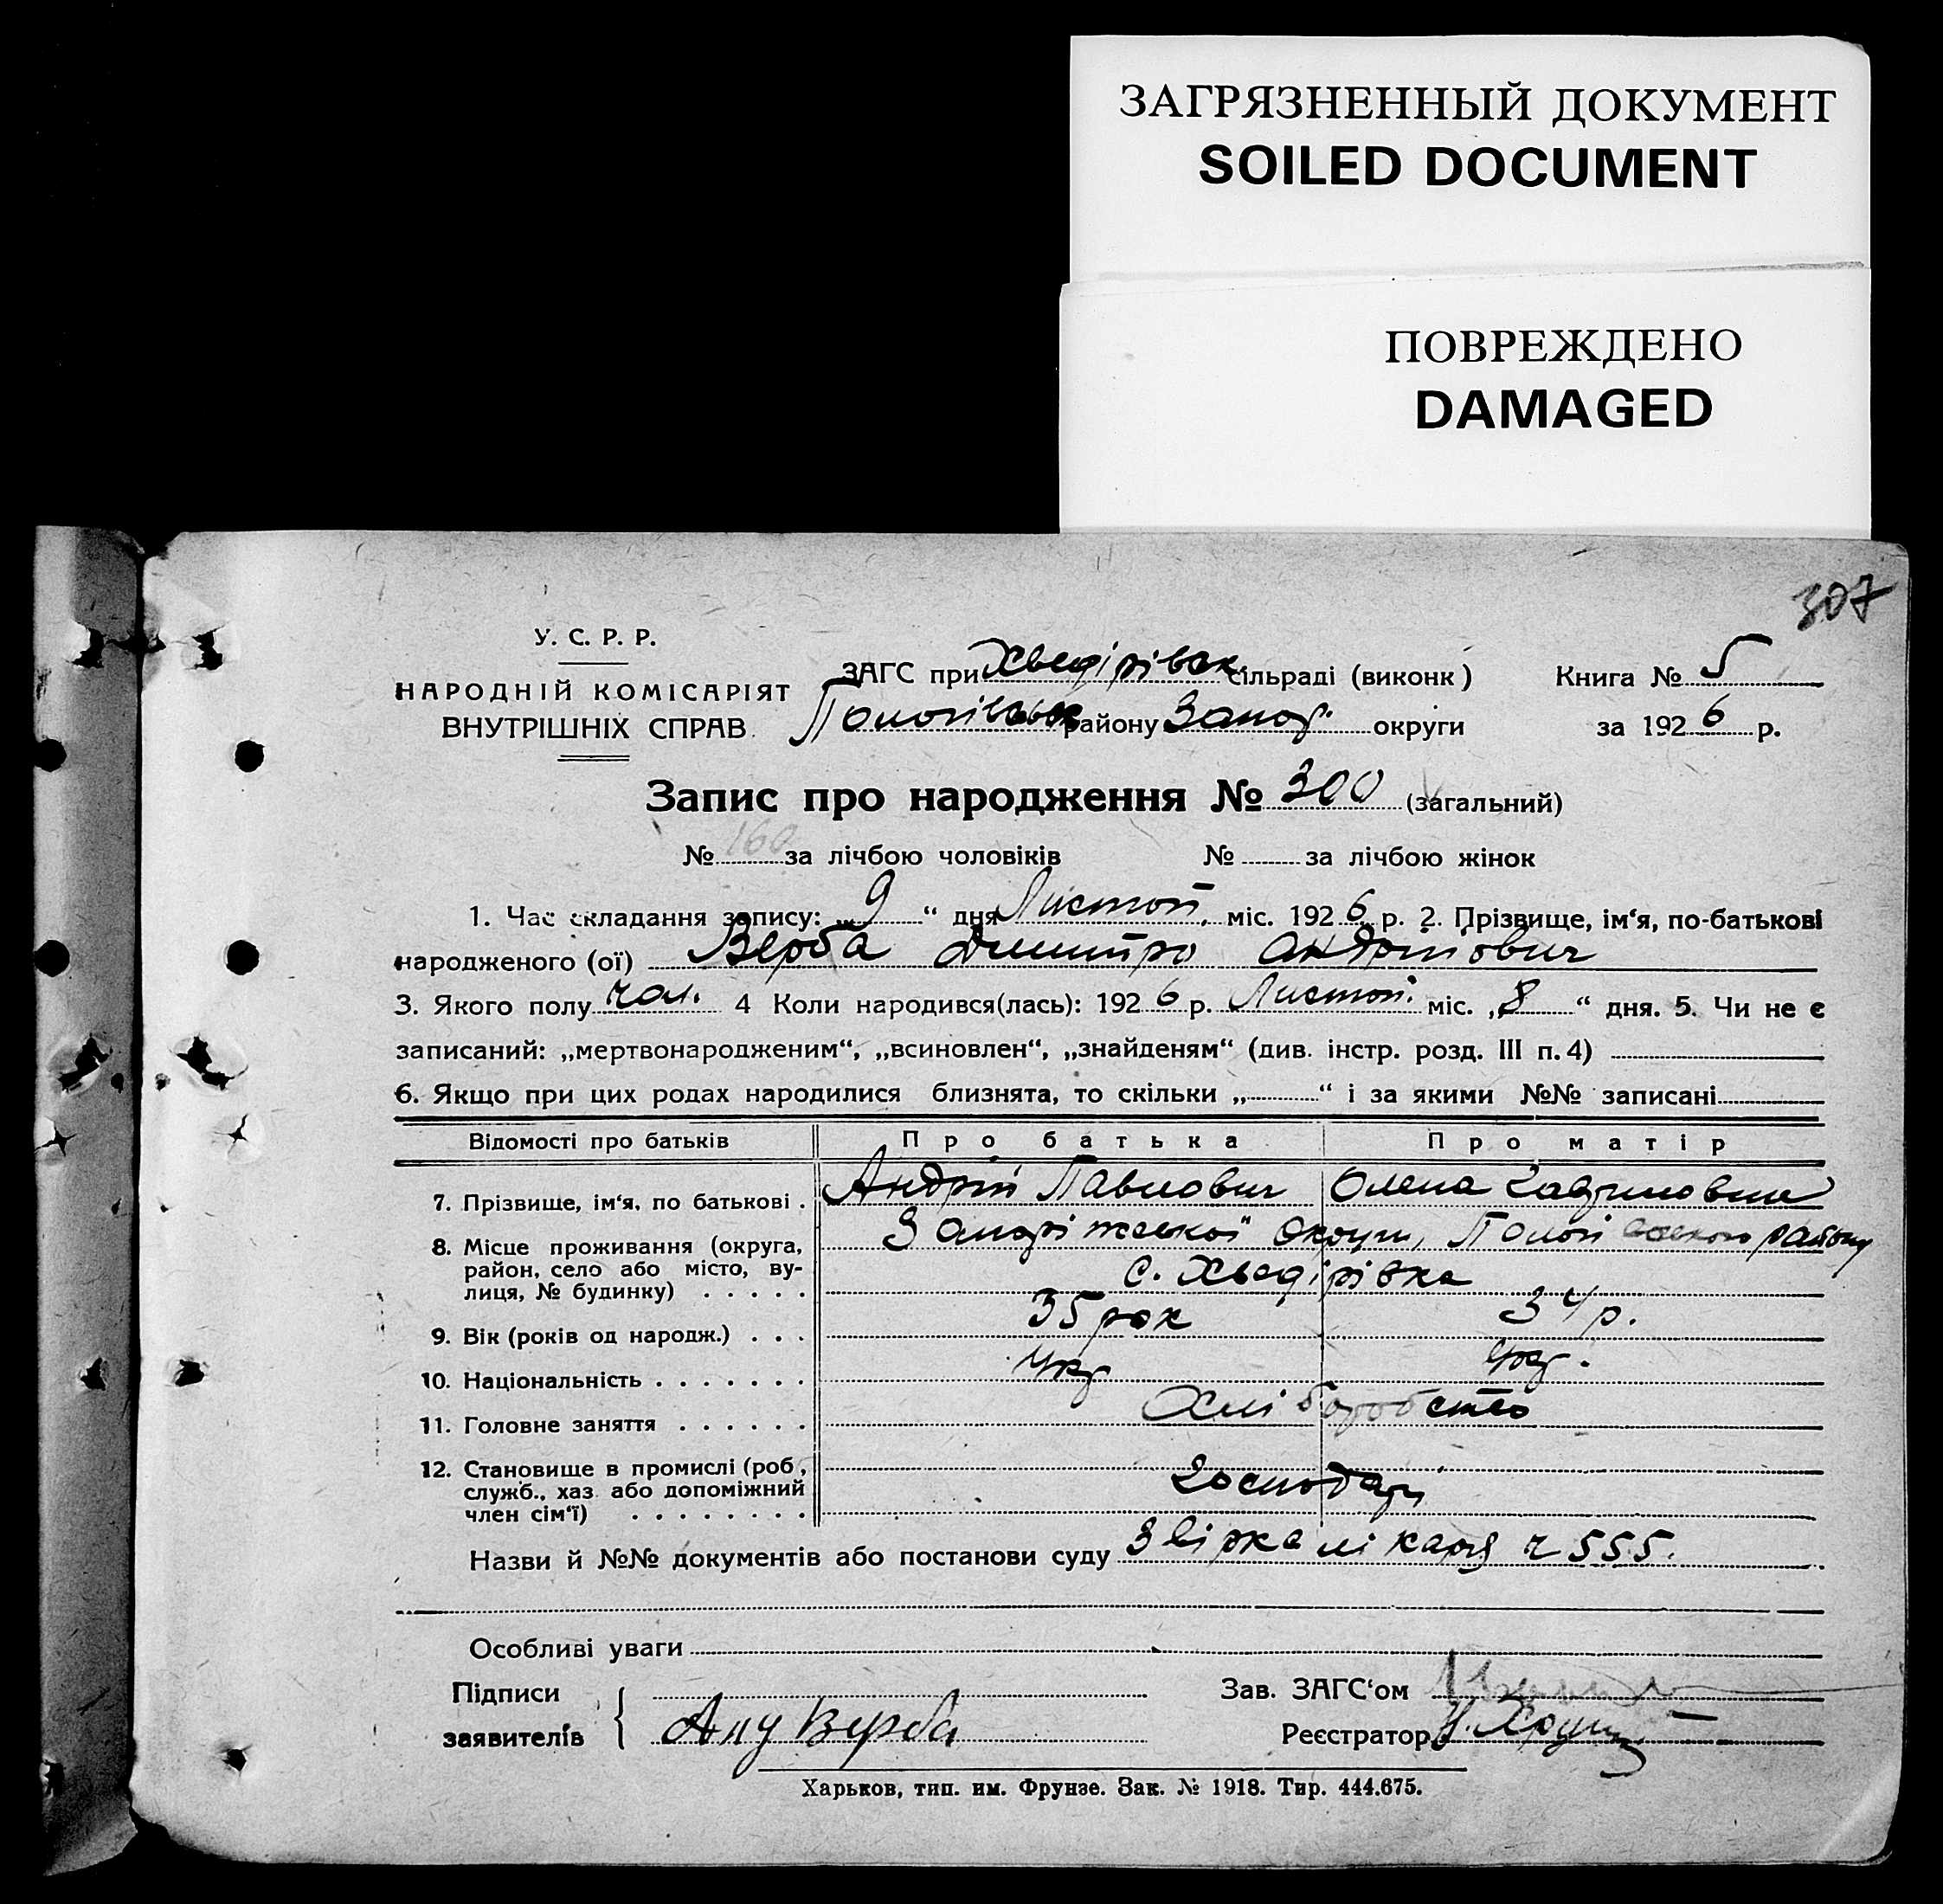 ЗАГРЯЗНЕННЫЙ ДОКУМЕНТ
SOILED DOCUMENT
ПОВРЕЖДЕНО
DAMAGED
307
У. С. Р. Р.
НАРОДНІЙ КОМІСАРІЯТ
ВНУТРІШНІХ СПРАВ.
ЗАГС при Хведірівск. сільраді (виконк) Книга № 5
району Запор. округи за 1926 р.
Запис про народження № 300 (загальний)
№ 160 за лічбою чоловіків № за лічбою жінок
1. Час складання запису: „9“ дня Листоп. міс. 1926 р. 2. Прізвище, ім‘я, по-батькові
народженого (ої) Верба Дмитро Андрійович
3. Якого полу чол. 4 Коли народився(лась): 1926 р. Листоп. міс. „8“ дня. 5. Чи не є
записаний: „мертвонародженим“, „всиновлен“, „знайденям“ (див. інстр. розд. III п. 4)
6. Якщо при цих родах народилися близнята, то скільки „ “ і за якими №№ записані
Відомості про батьків Про батька Про матір
7. Прізвище, ім‘я, по батькові . Андрій Павлович Олена Гавриловна
8. Місце проживання (округа, Запоріжської округи, району
район, село або місто, ву-
лиця, № будинку) . . . . . с. Хведірівка
9. Вік (років од народж.) . . . 35 рок 34 р.
10. Національність . . . . . . . Укр Укр.
11. Головне заняття . . . . . . Хліборобство
12. Становище в промислі (роб.,
служб., хаз. або допоміжний Господарі
член сім‘ї) . . . . . . . .
Назви й №№ документів або постанови суду лікаря ч 555.
Особливі уваги
Підписи Зав. ЗАГС‘ом
заявителів Верба Реєстратор
Харьков, тип. им. Фрунзе. Зак. № 1918. Тир. 444.675.